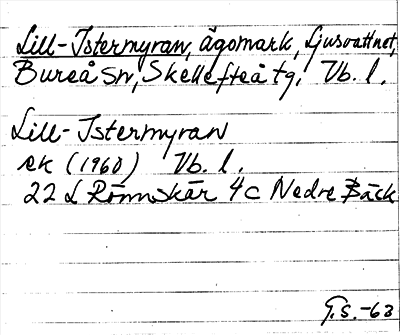 Lill-Istermyran, ägomark, Ljusvattnet,
Bureå sn, Skellefteå tg. Vb. l.
Lill-Istermyran
ek (1960) Vb. l.
22 L Rönnskär 4c Nedre Bäck
G.S. -63